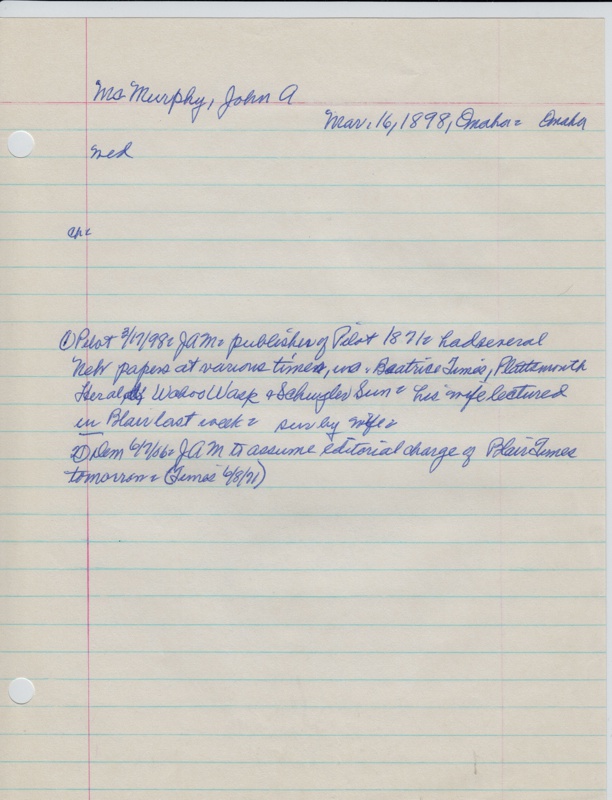 Mc Murphy, John A
Mar. 16, 1898, Omaha = Omaha
Wed
ch =
① Pilot 3/17/98 = JAM = publisher of Pilot 1871 = had several
news papers at various times, viz. Beatrice Times, Plattsmouth
Herald, Wahoo Wasp & Schuyler Sun = his wife lectured
in Blair last week = sur by wife =
② Dem JAM to assume editorial charge of Blair Times
tomorrow = (Times 6/8/71)